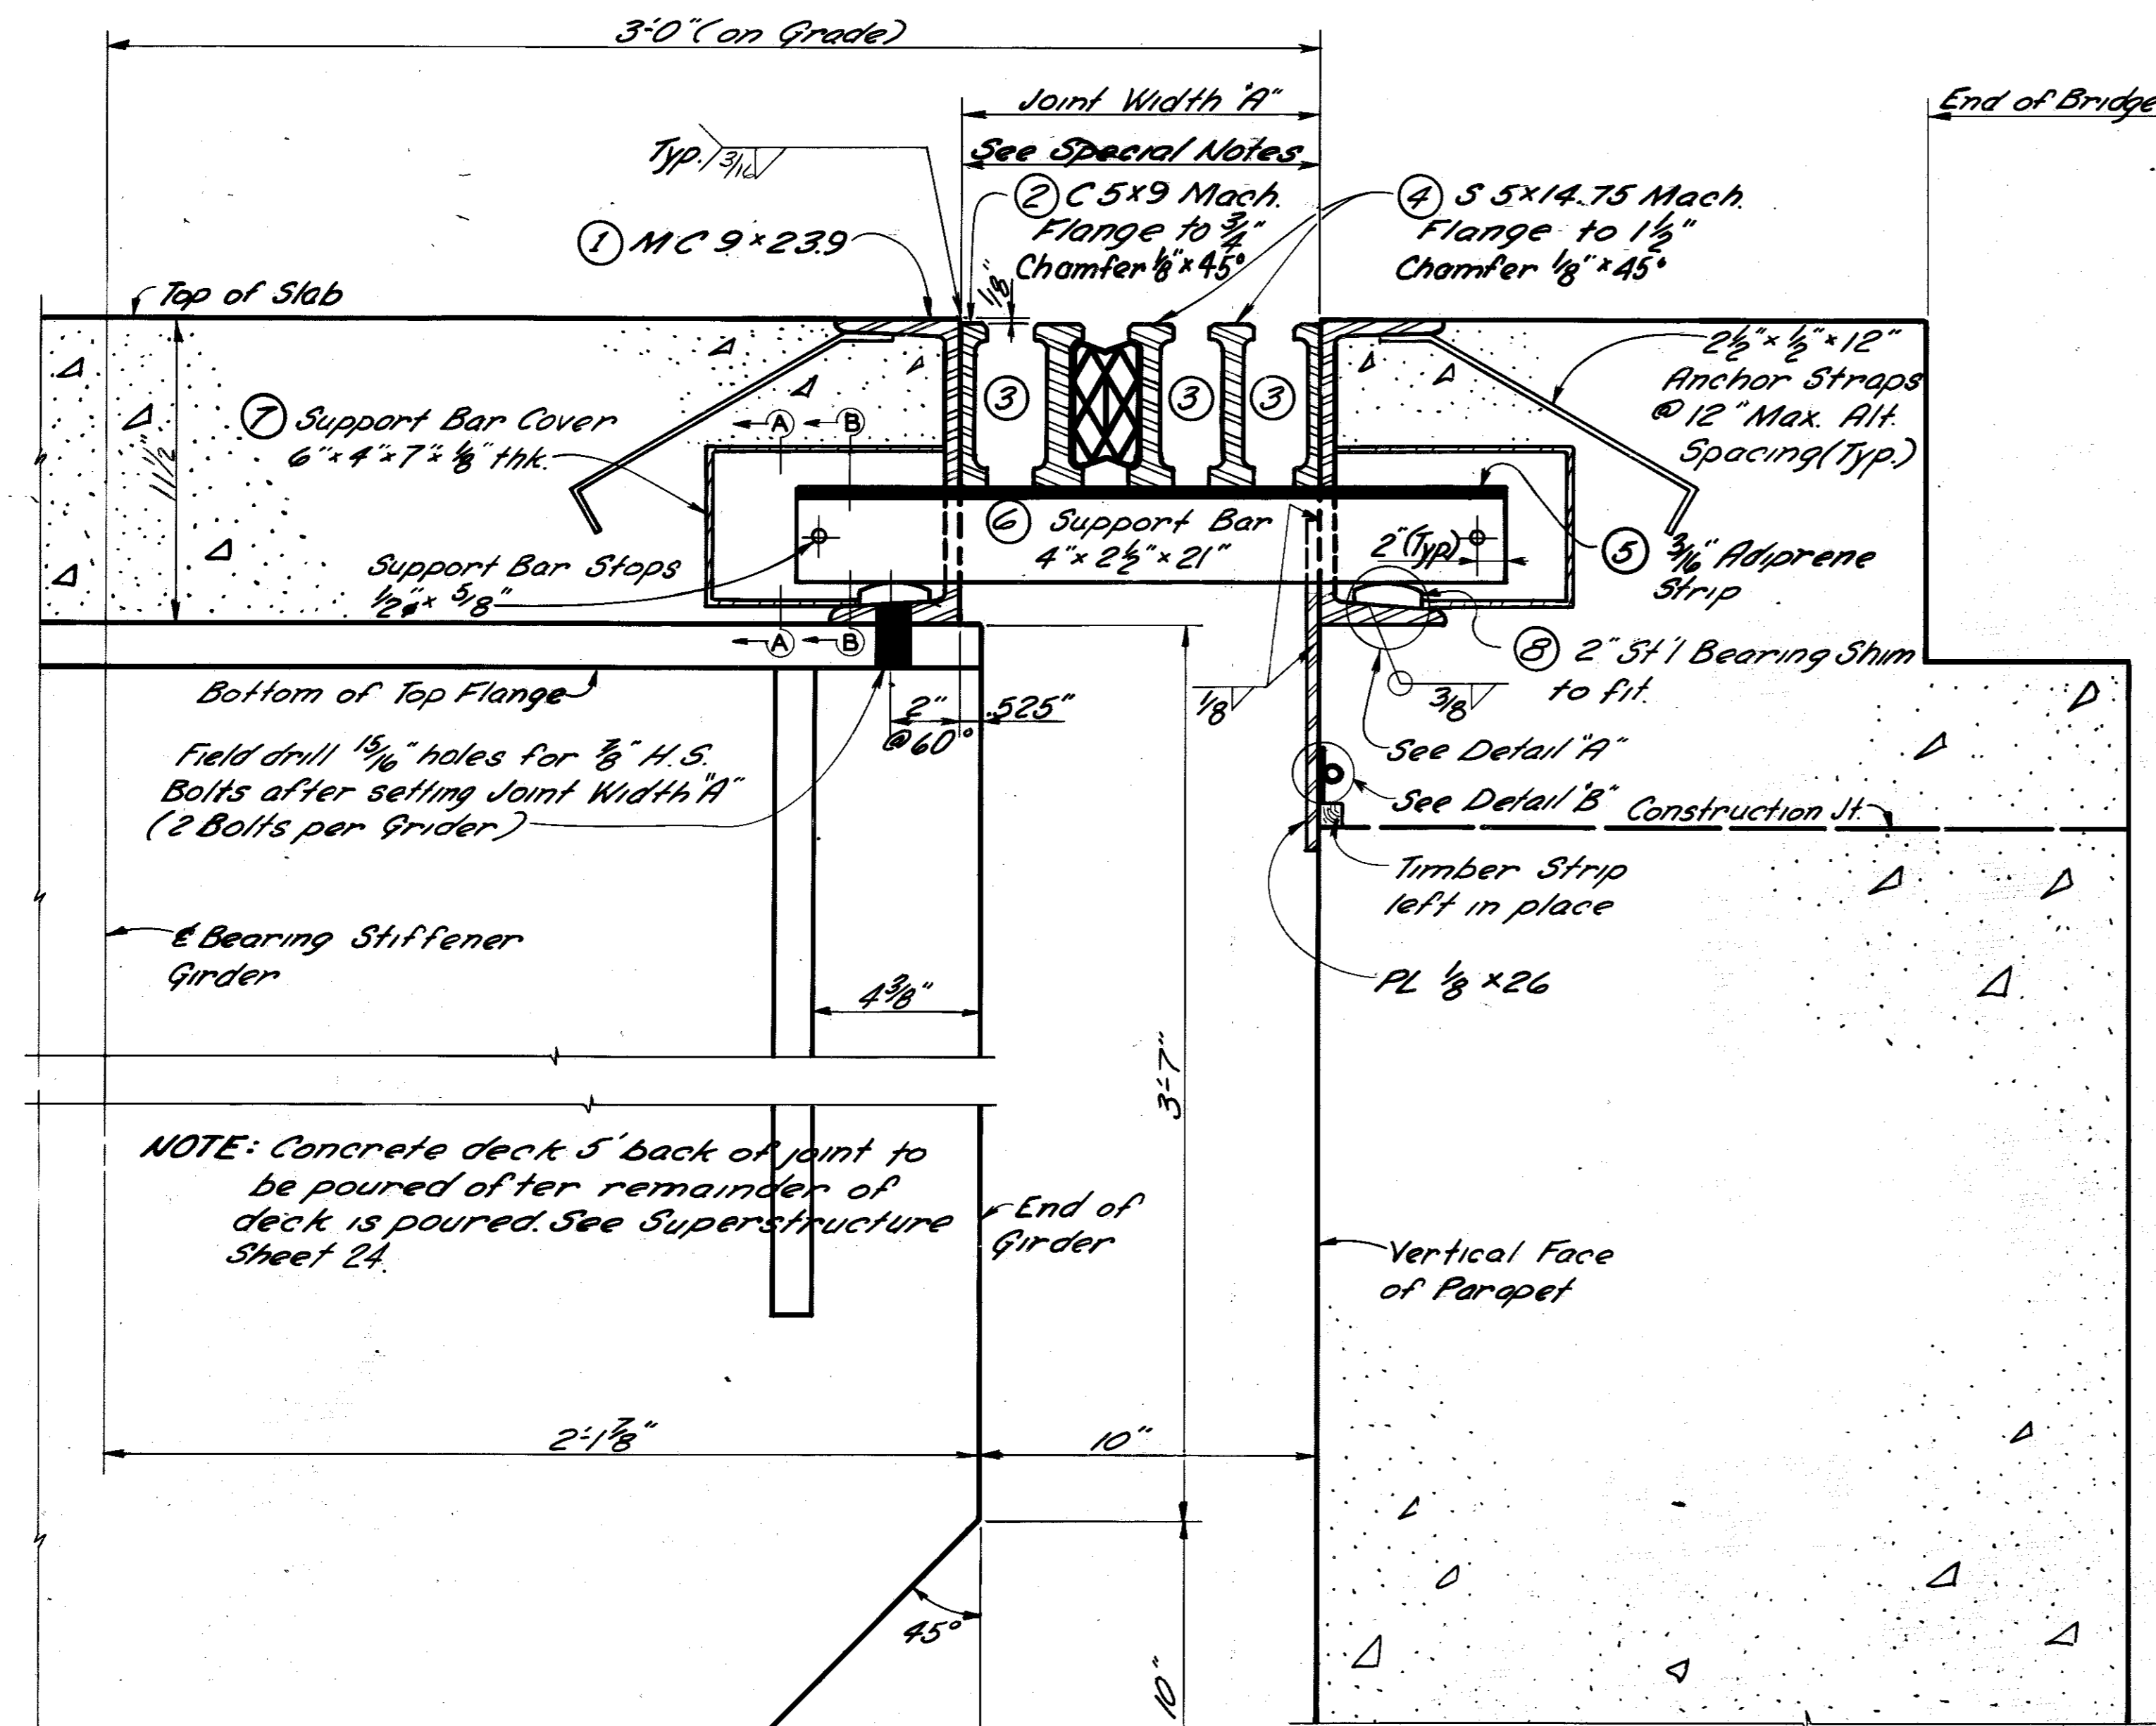 3'-0" (on Grade)
Joint Width "A"
End of Bridge
See Special Notes
Typ. 3/16
② C 5×9 Mach.
Flange to 3/4"
Chamfer 1/8" × 45°
④ S 5×14.75 Mach.
Flange to 1 1/2"
Chamfer 1/8" × 45°
① MC 9×23.9
1/8"
Top of Slab
2 1/2" × 1/2" × 12"
Anchor Straps
@ 12" Max. Alt.
Spacing (Typ.)
③ ③ ③
⑦ Support Bar Cover
6" × 4" × 7" × 1/8" thk.
11 1/2"
A B
⑥ Support Bar
4" × 2 1/2" × 21"
2" (Typ)
⑤ 3/16" Adiprene
Strip
Support Bar Stops
1/2"ø × 5/8"
A B
⑧ 2" St'l Bearing Shim
to fit.
Bottom of Top Flange
2" .525"
@60°
1/8
3/8
See Detail "A"
Field drill 15/16" holes for 7/8" H.S.
Bolts after setting Joint Width "A"
(2 Bolts per Grider)
See Detail "B"
Construction Jt.
Timber Strip
left in place
℄ Bearing Stiffener
Girder
PL 1/8 × 26
4 3/8"
3'-7"
NOTE: Concrete deck 5' back of joint to
be poured ofter remainder of
deck is poured. See Superstructure
Sheet 24.
End of
Girder
Vertical Face
of Parapet
2'-1 7/8"
10"
45°
10"